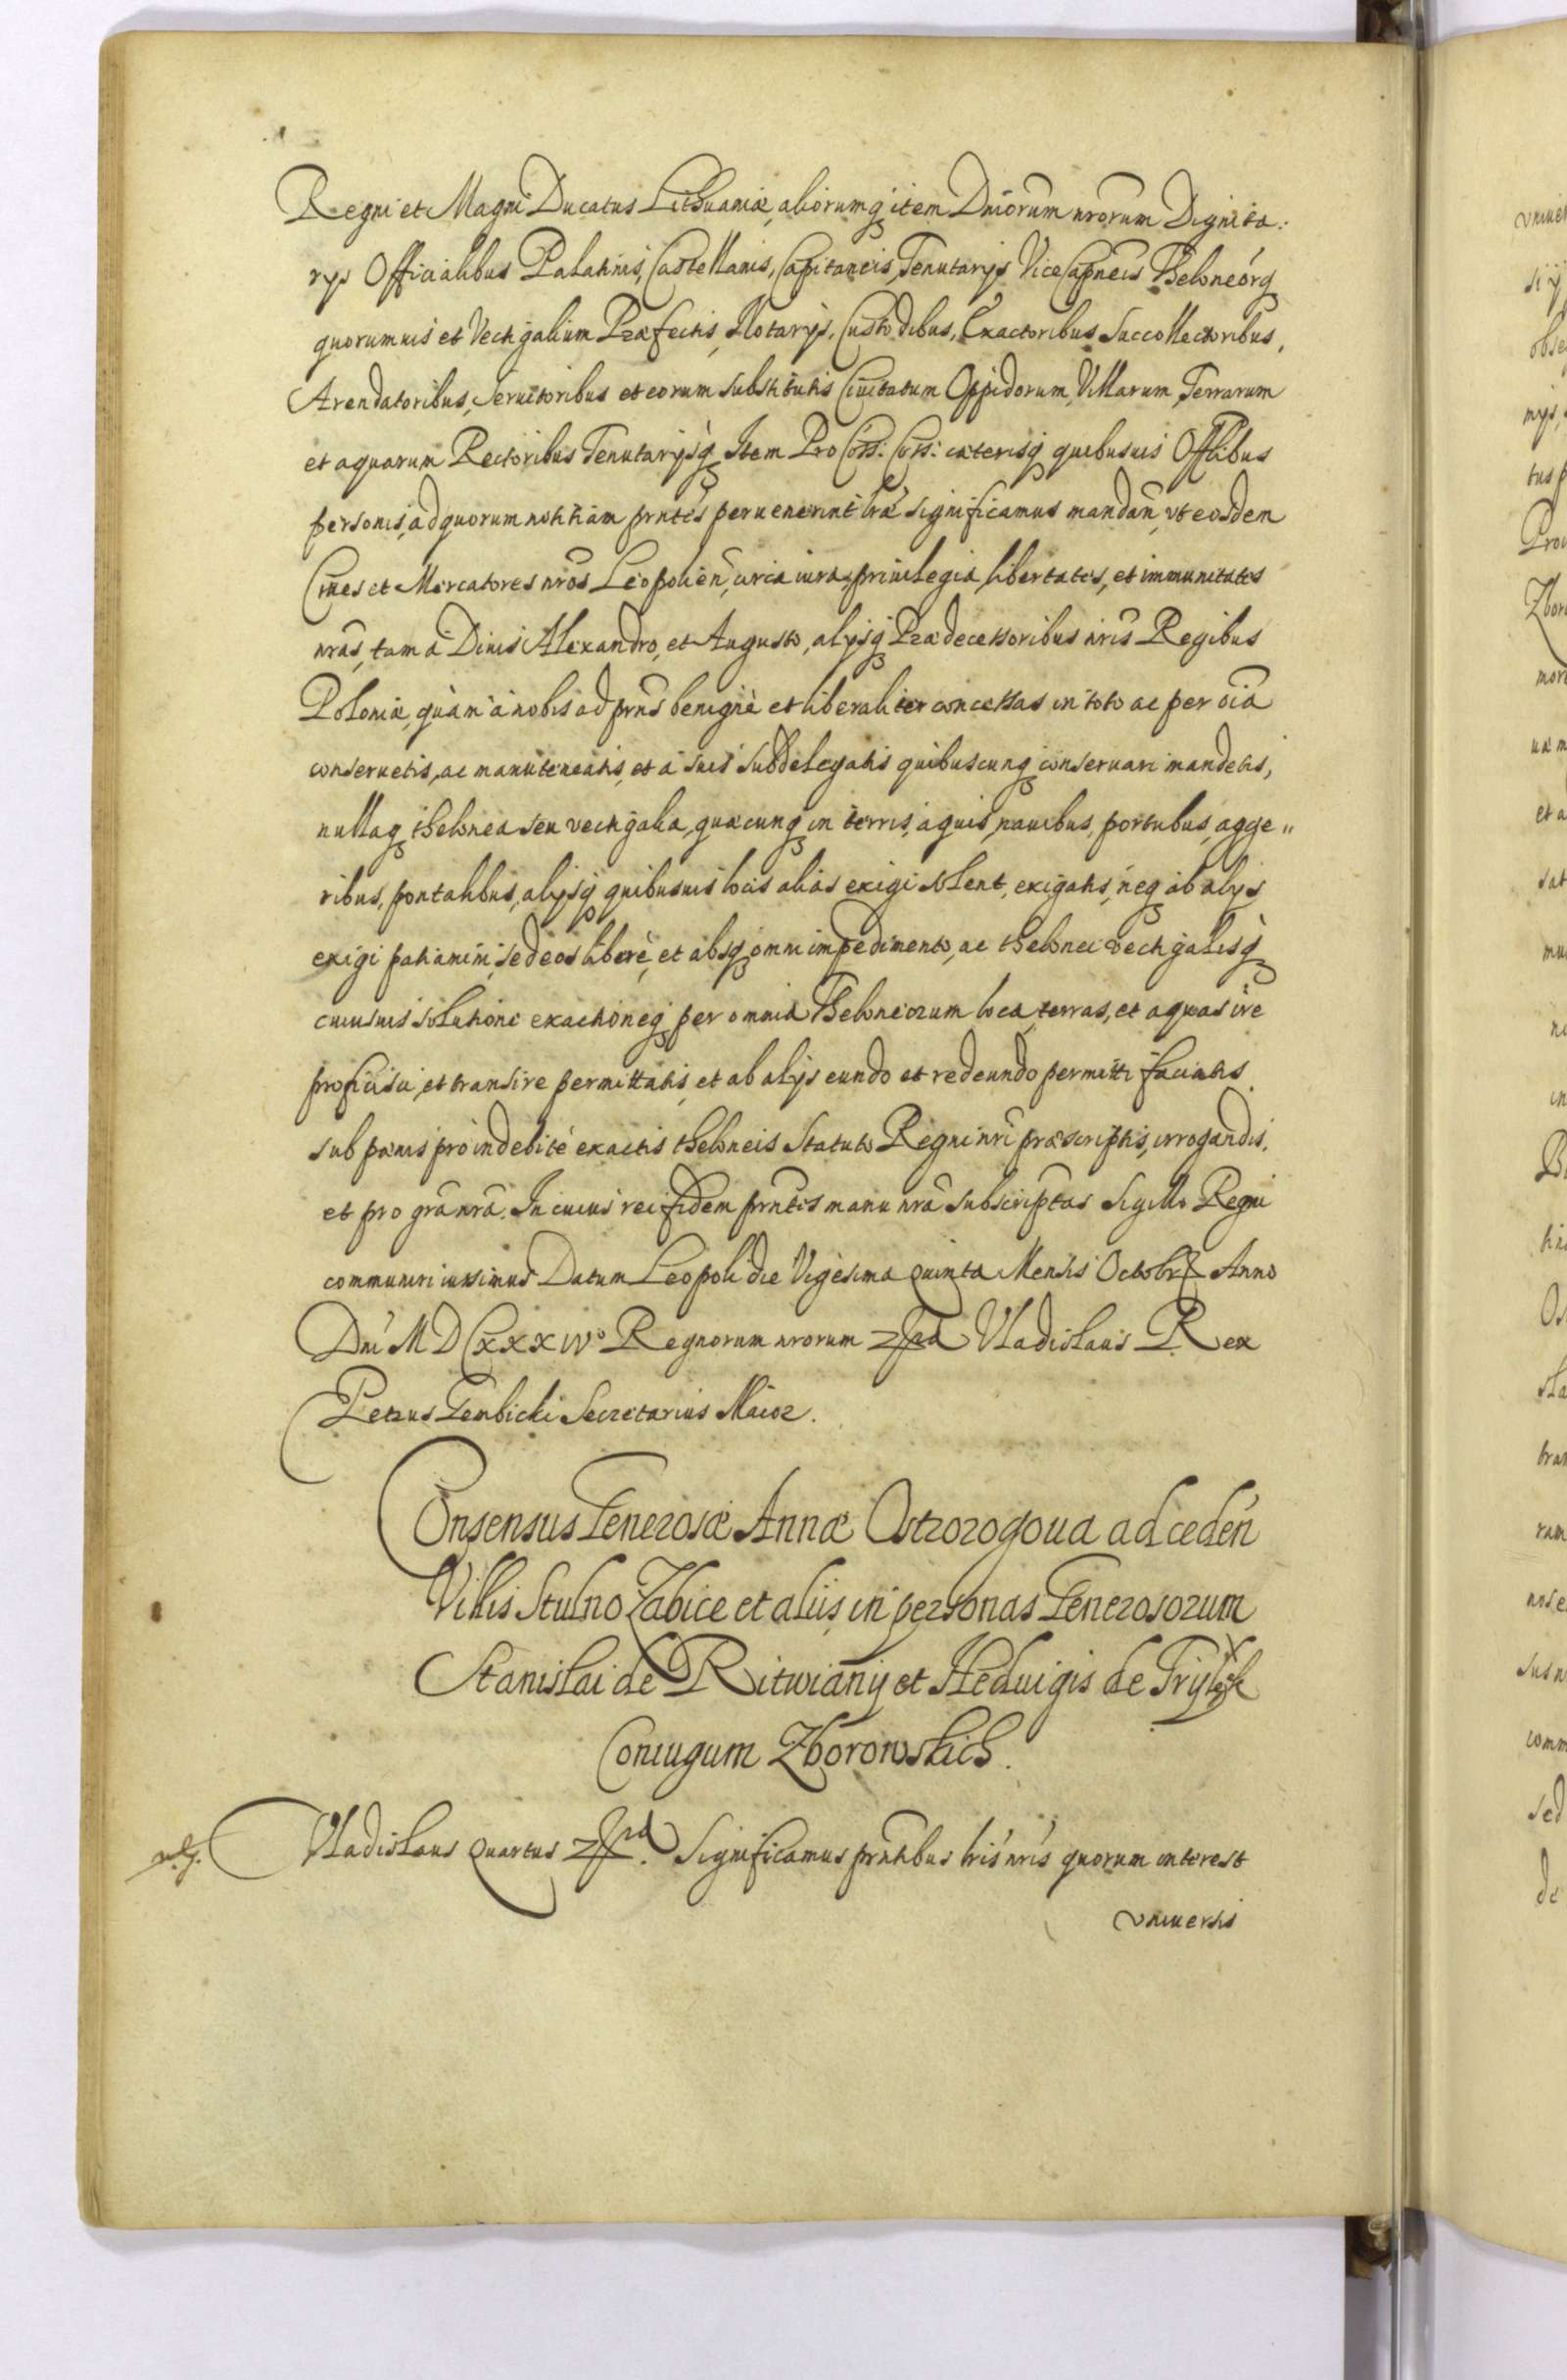 Regni et Magni Ducatus Lithuaniæ, aliorumq item Dniorum nrorum Dignita:
rys Officialibus Palatinis, Castellanis, Capitaneis, Tenutarijs Vice Capneis Theloneorq
quorumuis et Vectigalium Præfectis, Notarijs, Custodibus, Exactoribus Succollectoribus,
Arendatoribus, Seruitoribus et eorum substitutis Ciuitatum Oppidorum, Villarum, Terrarum
et aquarum Rectoribus Tenutarijsq Item Pro Coss: Coss: cæterisq quibusuis Offlibus
personis, ad quorum notitiam prntes peruenerint lræ significamus mandan, vt eosdem
Ciues et Mercatores nros Leopolien, circa iura, priuilegia, libertates, et immunitates
nras, tam a Diuis Alexandro, et Augusto, alijsq Prædecessoribus nris Regibus
Poloniæ, quàm à nobis ad prns benignè et liberaliter concessas in toto ac per oia
conseruetis, ac manuteneatis, et à suis subdelegatis quibuscunq conseruari mandetis,
nullaq thelonea seu vectigalia, quæcunq in terris, aquis, nauibus, portubus, agge"
ribus, pontalibus, alijsq quibusuis locis alias exigi solent, exigatis, neq ab alijs
exigi patiamini, sed eos liberè, et absq omni impedimento, ac thelonei vectigalisq
cuiusuis solutione exactioneq per omnia Theloneorum loca, terras, et aquas ire
proficisci, et transire permittatis, et ab alijs eundo et redeundo permitti faciatis.
sub pænis pro indebitè exactis theloneis Statuto Regni nri præscriptis, irrogandis.
et pro gra nra. In cuius rei fidem prntes manu nra subscriptas Sigillo Regni
communiri iussimus Datum Leopoli die Vigesima quinta Mensis Octobr Anno
Dni M D CXXXIVo Regnorum nrorum Vladislaus Rex
Petrus Gembicki Secretarius Maior.
Consensus Generosæ Annæ Ostrorogoua ad ceden
Villis Stulno Zabice et aliis in personas Generosorum
Stanislai de Ritwiany et Heduigis de
Coniugum Zborowskich.
Vladislaus quartus Significamus prntibus lris nris quorum interest
vniuersis